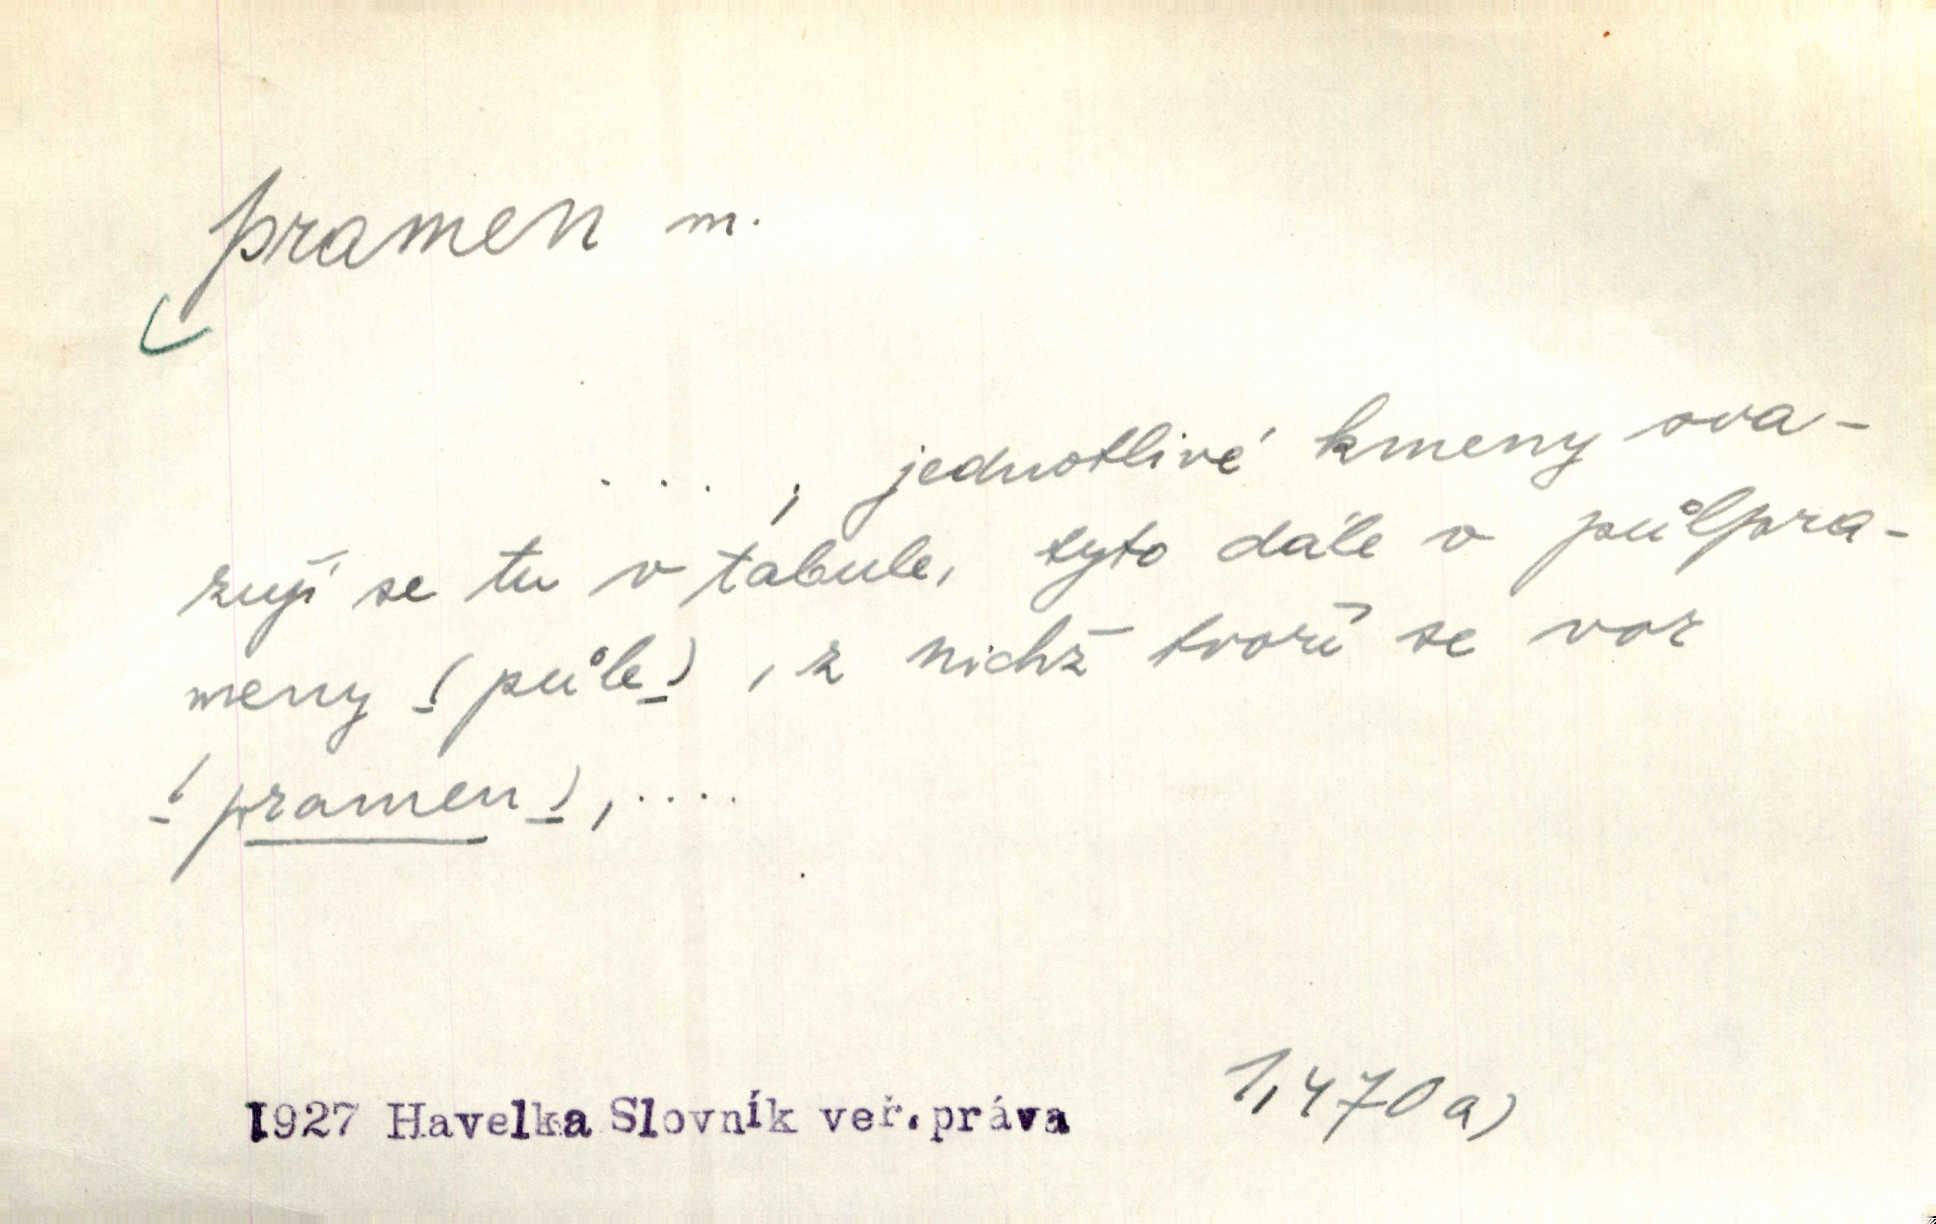 pramen m.
...., jednotlivé kmeny sva-
zují se tu v tabule, tyto dále v půlpra-
meny (půle), z nichž tvoří se vor
(pramen),....
1927 Havelka Slovník veř.práva 1,470a)